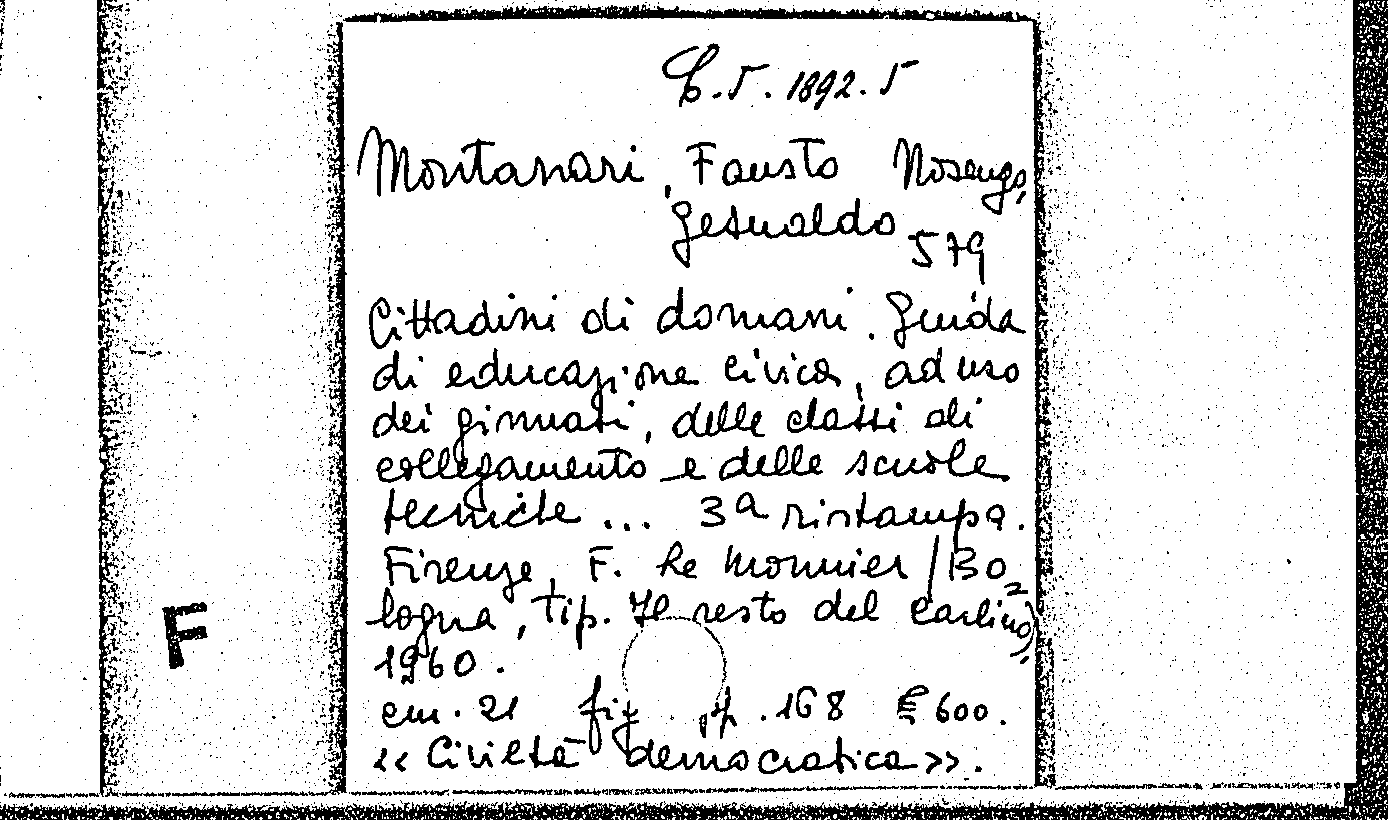 C.5.1892.5
Montanari, Fausto Nosengo,
Gesualdo 579
Cittadini di domani. Guida
di educazione civica, ad uso
dei ginnasi, delle classi di
collegamento e delle scuole
tecniche ... 3ª ristampa.
Firenze, F. Le Monnier (Bo=
logna, tip. Il resto del Carlino),
1960.
cm. 21 fig. p. 168 £ 600.
<< Civiltà democratica >>.
F